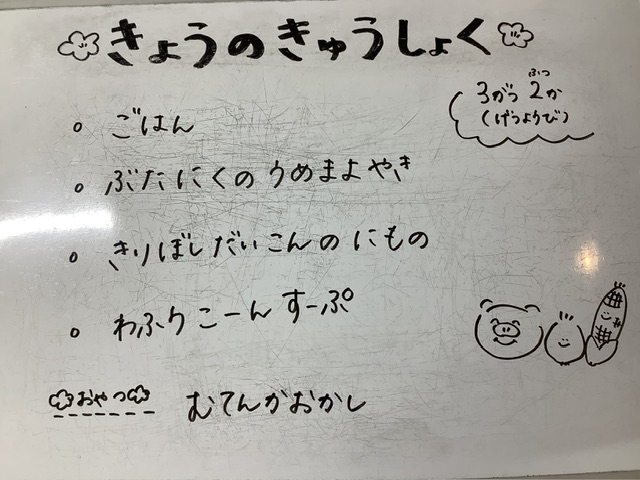 きょうのきゅうしょく
3がつ 2か
ふつ
(げつようび)
。ごはん
。ぶたにくのうめまよやき
。きりぼしだいこんのにもの
。わふうこーんすーぷ
おやつ むてんかおかし